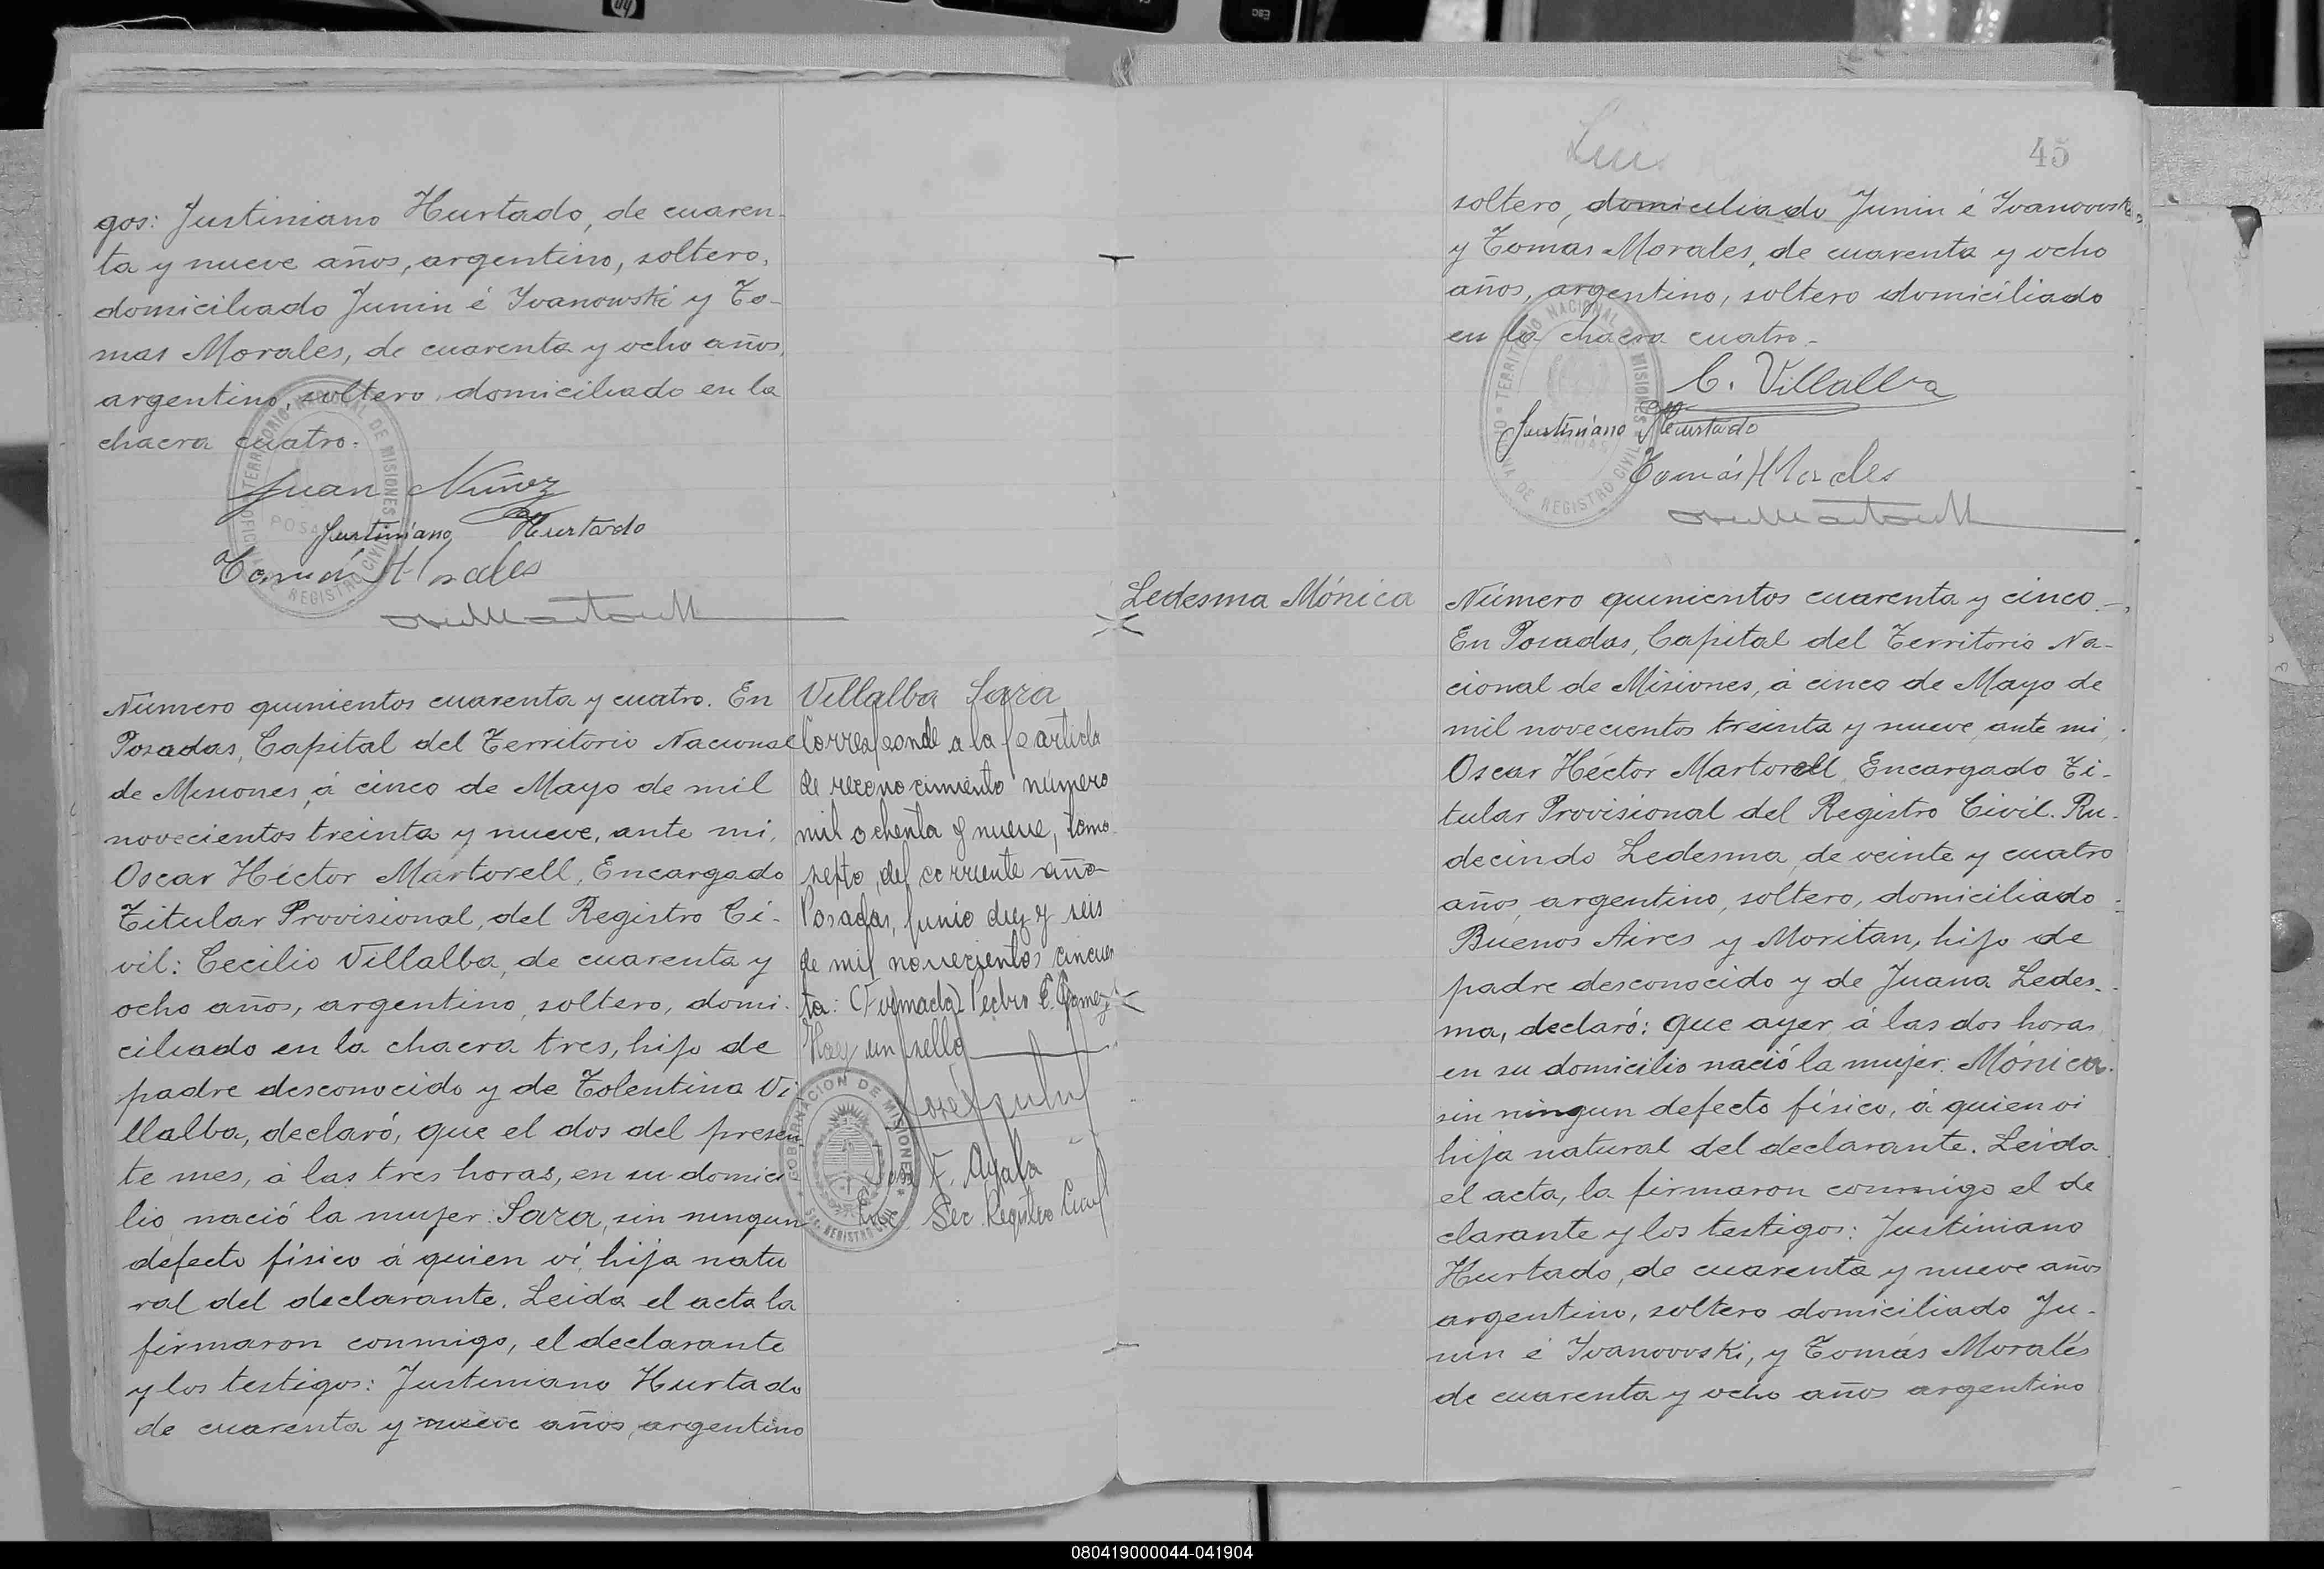 gos: Justiniano Hurtado, de cuaren-
ta y nueve años, argentino, soltero,
domiciliado Junin é Ivanowski y To-
mas Morales, de cuarenta y ocho años,
argentino, soltero, domiciliado en la
chacra cuatro.
Juan Nuñez
Justiniano Hurtado
Tomás Morales
Número quinientos cuarenta y cuatro. En
Posadas, Capital del Territorio Nacional
de Misiones, á cinco de Mayo de mil
novecientos treinta y nueve, ante mi,
Oscar Héctor Martorell, Encargado
Titular Provisional, del Registro Ci-
vil: Cecilio Villalba, de cuarenta y
ocho años, argentino, soltero, domi-
ciliado en la chacra tres, hijo de
padre desconocido y de Tolentina Vi
llalba, declaró, que el dos del presen
te mes, á las tres horas, en su domici
lio nació la mujer: Sara, sin ningun
defecto físico á quien ví hija natu
ral del declarante. Leida el acta la
firmaron conmigo, el declarante
y los testigos: Justiniano Hurtado
de cuarenta y nueve años, argentino
Villalba Sara
Corresponde a la partida
de reconocimiento número
mil ochenta y nueve, tomo
septo, del corriente año
Posadas, Junio diez y seis
de mil novecientos cincuen
ta: (Firmado) Pedro C. Gomez
Hay un sello
F. Ayala
Enc. Sec. Registro Civil
GOBERNACION DE MISIONES
SEC. REGISTRO CIVIL
45
soltero, domiciliado Junin é Ivanowski
y Tomás Morales, de cuarenta y ocho
años, argentino, soltero domiciliado
en la chacra cuatro.
TERRITORIO NACIONAL DE MISIONES
DE REGISTRO CIVIL
C. Villalba
Justiniano Hurtado
Tomás Morales
Ledesma Mónica
Número quinientos cuarenta y cinco.
En Posadas, Capital del Territorio Na-
cional de Misiones, á cinco de Mayo de
mil novecientos treinta y nueve, ante mi,
Oscar Héctor Martorell, Encargado Ti-
tular Provisional del Registro Civil. Ru-
decindo Ledesma, de veinte y cuatro
años, argentino, soltero, domiciliado
Buenos Aires y Moritan, hijo de
padre desconocido y de Juana Ledes-
ma, declaró: que ayer á las dos horas
en su domicilio nació la mujer: Mónica.
sin ningun defecto físico, á quien vi
hija natural del declarante. Leida
el acta, la firmaron conmigo el de
clarante y los testigos: Justiniano
Hurtado, de cuarenta y nueve años
argentino, soltero domiciliado Ju-
nin é Ivanowski, y Tomás Morales
de cuarenta y ocho años argentino
080419000044-041904